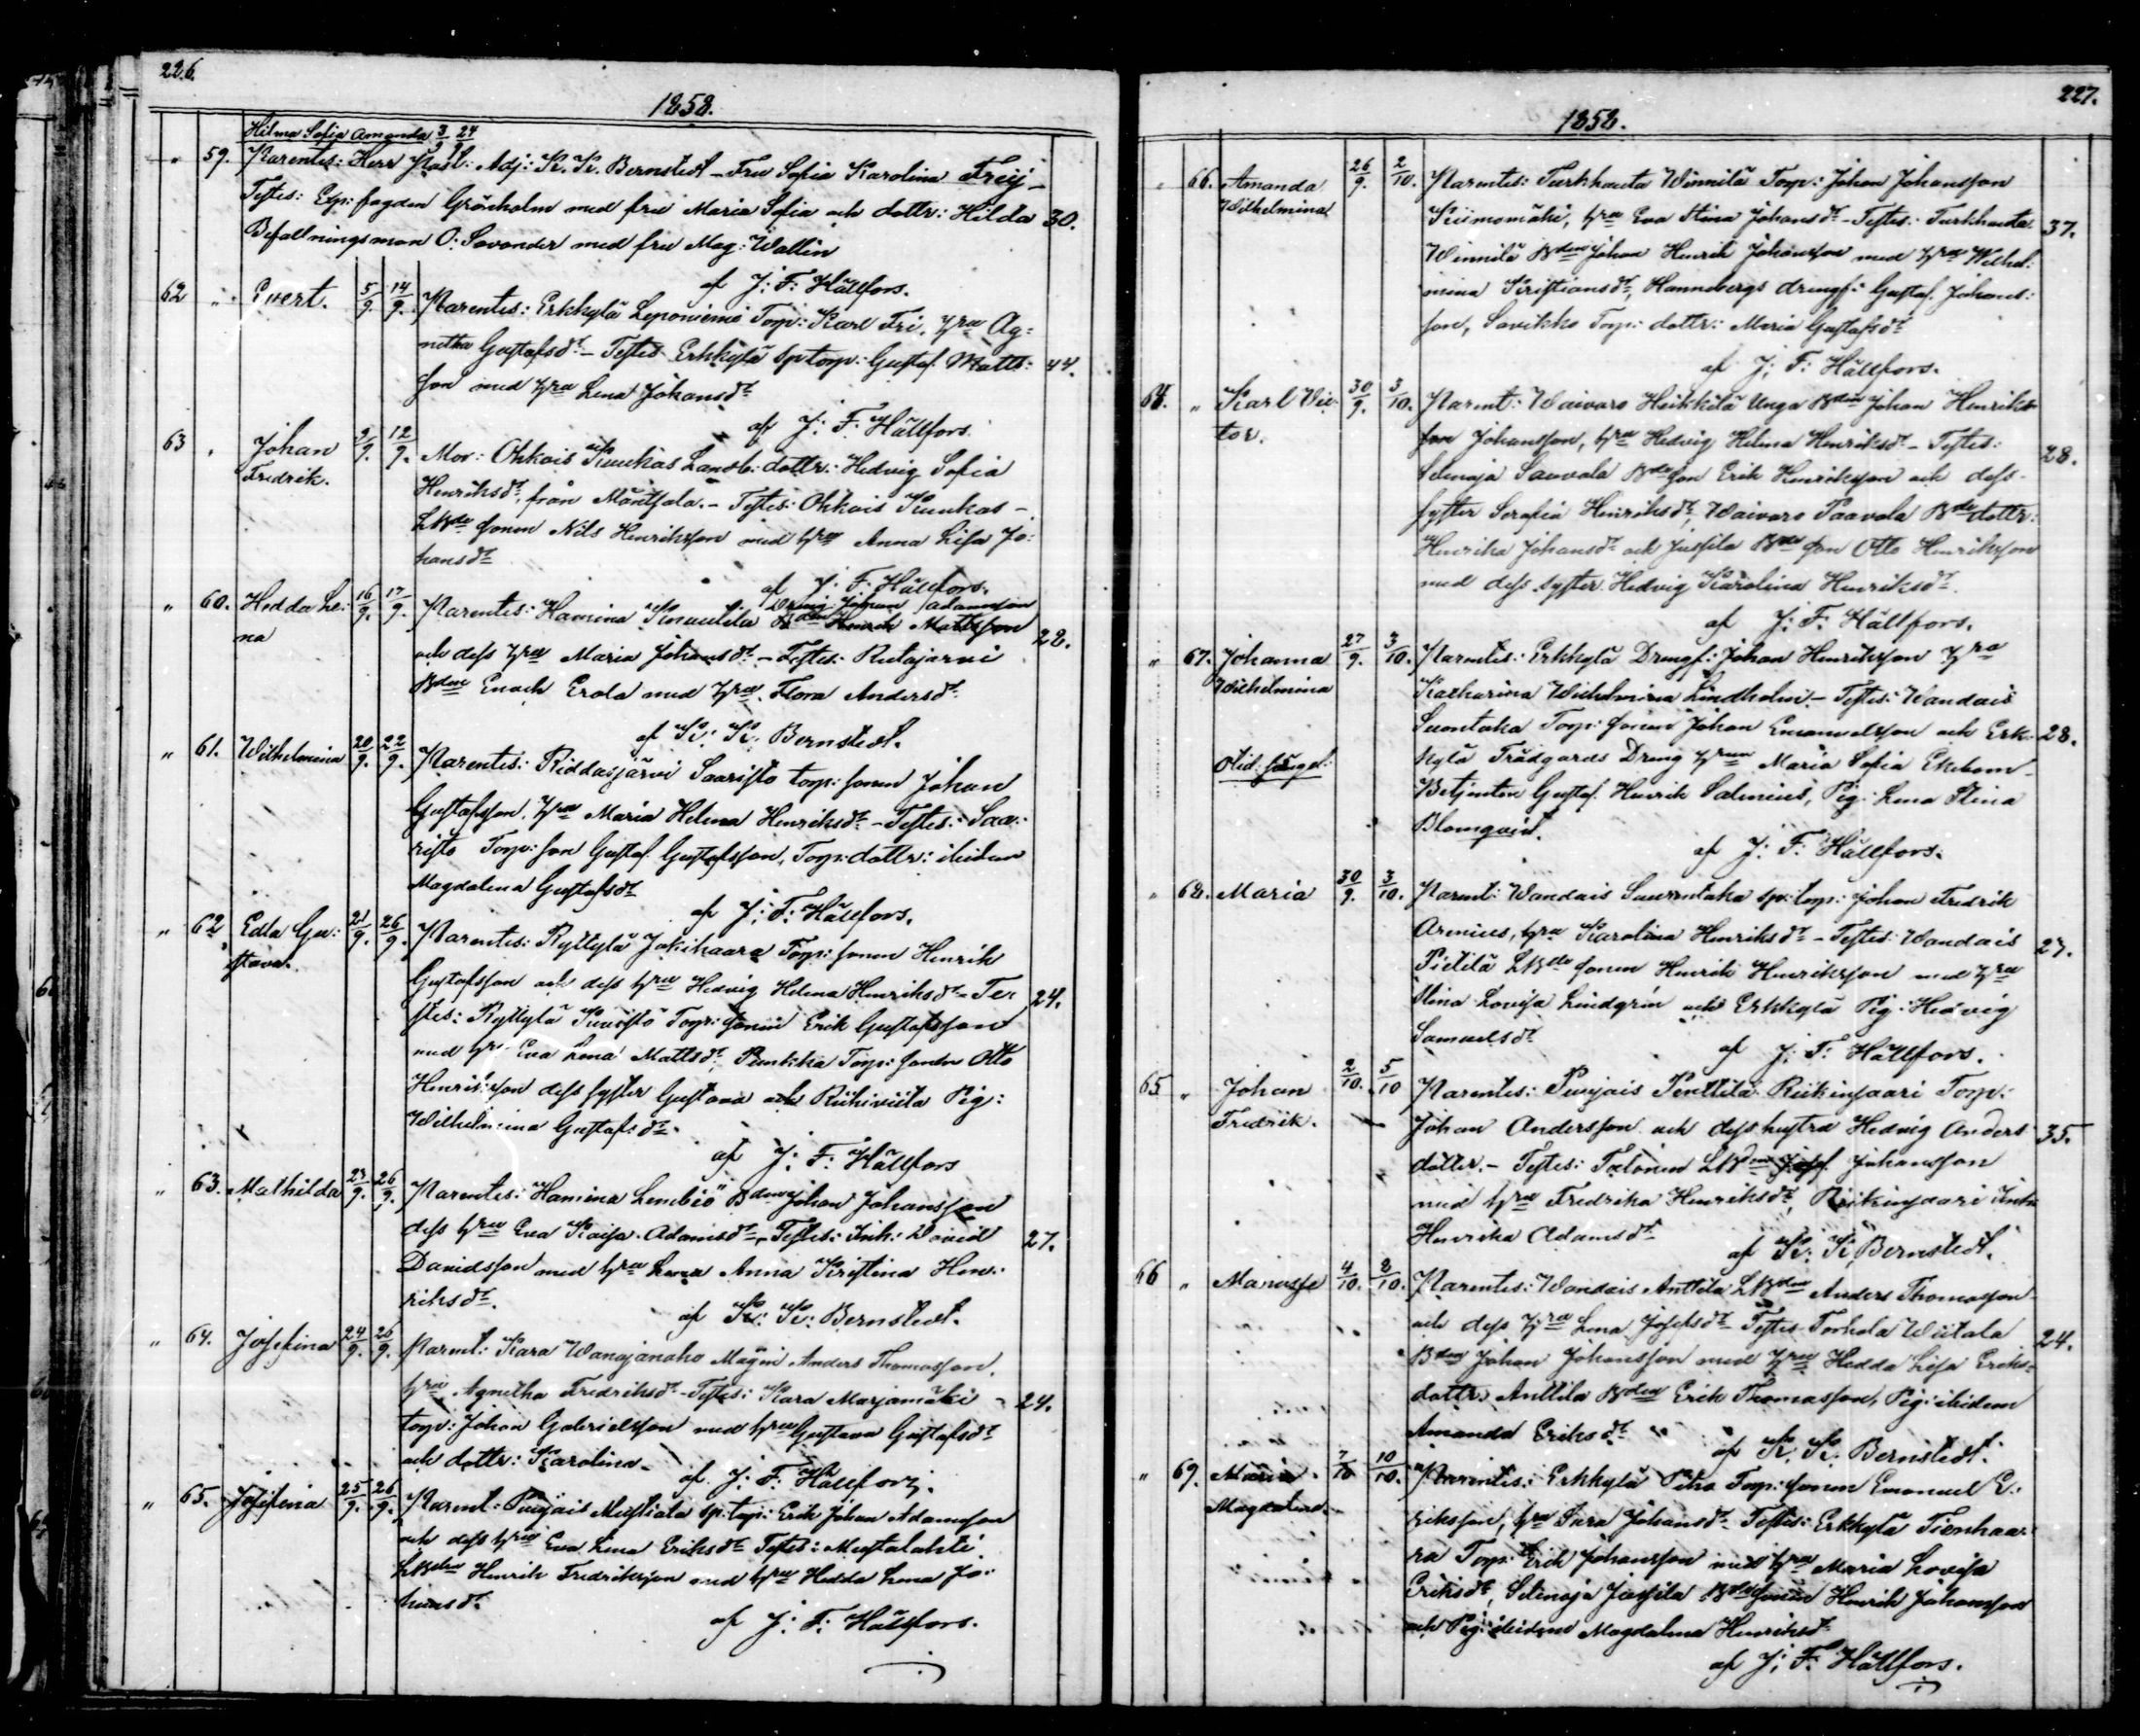 226.
1858.
Hilma Sofia Amanda 3/9 24/9
" 59. Parentes: Herr Past: Adj: K. K. Bernstedt – Fru Sofia Karolina Freij –
Testes: Exp: fogden Grönholm med fru Maria Sofia och dottr: Hilda 30.
Befallningsman O: Savander med fru Mag: Wallin
af J: F: Hällfors.
62 " Evert. 5/9. 14/9. Parentes: Erkkylä Leponiemi Torp: Karl Fri, hru Ag:
netha Gustafsdr – Testes Erkkylä sp torp: Gustaf Matts: 44.
son med hru Lena Johansdr
af J: F: Hällfors.
63 " Johan 9/9. 12/9. Mor: Ohkois Kuukas Landb: dottr: Hedvig Sofia
Fredrik.
Henriksdr, från Mäntsälä. – Testes: Ohkois Kuukas –
LBde sonen Nils Henriksson med hru Anna Lisa Jo:
hansdr
af J: F: Hällfors.
Dreng Johan Adamsson
" 60. Hedda Le: 16/9. 17/9. Parentes: Hamina Knuutila Bden Henrik Mattsson 28.
na
och dess hru Maria Johansdr – Testes: Rutajärvi
Bden Enoch Erola med hru Flora Andersdr
af K: K: Bernstedt.
" 61. Wilhelmina 20/9. 22/9. Parentes: Riddasjärvi Saaristo torp: sonen Johan
Gustafsson, hru Maria Helena Henriksdr – Testes: Saa:
risto Torp: son Gustaf Gustafsson, Torp: dottr: ibidem
Magdalena Gustafsdr
af J: F: Hällfors.
" 62 Edla Gu: 21/9. 26/9. Parentes: Ryttylä Jokihaara Torp: sonen Henrik
stava.
Gustafsson och dess hru Hedvig Helena Henriksdr – Te: 24.
stes: Ryttylä Torp: sonen Erik Gustafsson
med hru Eva Lena Mattsdr, Punkka Torp: sonen Otto
Henriksson dess syster Gustava och Riihiviita Pig:
Wilhelmina Gustafsdr.
af J: F: Hällfors
" 63. Mathilda 23/9. 26/9. Parentes: Hamina Lembiö Bden Johan Johansson
dess hru Eva Kaisa Adamsdr, Testes: Inh: David 27.
Davidsson med hru Anna Kristina Hen:
riksdr.
af K: K: Bernstedt.
" 64. Josefina 24/9. 26/9. Parent: Kara Wanajanaho Mågen Anders Thomasson,
hru Agnetha Fredriksdr – Testes: Kara Marjamäki – 24.
torp: Johan Gabrielsson med hru Gustava Gustafsdr
och dottr: Karolina –
af J: F: Hällfors.
" 65. Josefina 25/9. 26/9. Parent: Puujais Mustiala sp: torp: Erik Johan Adamsson
och dess hru Eva Lena Eriksdr Testes: Mustalahti
LBden Henrik Fredriksson med hru Hedda Lena Jo:
hansdr.
af J: F: Hällfors.
227.
1858.
" 66. Amanda 26/9. 2/10. Parentes: Turkhauta Winnilä Torp: Johan Johansson
Wilhelmina
Kiimomäki, hru Eva Stina Johansdr – Testes: Turkhauta 37.
Winnilä Bden Johan Henrik Johansson med hru Wilhel:
mina Kristiansdr, Hannebergs drengs: Gustaf Johans:
son, Savikko Torp: dottr: Maria Gustafsdr
af J: F: Hällfors.
64. " Karl Vic: 30/9. 3/10. Parent: Waivaro Heikkilä Unga Bden Johan Henrik
tor.
son Johansson, hru Hedvig Helma Henriksdr – Testes: 28.
Selinoja Saavola Bdeson Erik Henriksson och dess
syster Serafia Henriksdr, Waivaro Paavola Bde dottr:
Henrika Johansdr och Jussila Bde son Otto Henriksson
med dess syster Hedvig Karolina Henriksdr.
af J: F: Hällfors.
" 67. Johanna 27/9. 3/10. Parentes: Erkkylä Drengs: Johan Henriksson hru
Wilhelmina
Katharina Wilhelmina Lindholm. – Testes: Wandais
Suontaka Torp: sonen Johan Emanuelsson och Erk: 28.
kylä Trädgårds Dreng hrun Maria Sofia Ekebom –
Betjenten Gustaf Henrik Salenius, Pig: Lena Stina
Blomqvist.
af J: F: Hällfors.
" 68. Maria 30/9. 3/10. Parent: Wandais Suontaka sp: torp: Johan Fredrik
Arenius, hru Karolina Henriksdr – Testes: Wandais 27.
Pietilä LBde sonen Henrik Henriksson med hru
Stina Lovisa Lindgrén och Erkkylä Pig: Hedvig
Samuelsdr
af J: F: Hällfors.
65 " Johan 2/10. 5/10 Parentes: Puujais Penttilä Riikinsaari Torp:
Fredrik.
Johan Andersson och dess hustru Hedvig Anders 35.
dotter. – Testes: LBden Johansson
med hru Fredrika Henriksdr, Riikinsaari Inh:
Henrika Adamsdr
af K: K: Bernstedt.
66 " Manasse 4/10. 8/10. Parentes: Wandais Anttila LBden Anders Thomasson
och dess hru Lena Josefsdr Testes Torhola Wiitala 24.
Bden Johan Johansson med hru Hedda Lisa Eriks:
dottr, Anttila Bden Erik Thomasson, Pig: ibidem
Amanda Eriksdr
af K: K: Bernstedt.
" 69. Maria 7/10 10/10. Parentes: Erkkylä Torp: sonen Emanuel E:
Magdalena.
riksson, hru Sara Johansdr Testes: Erkkylä Tienhaa:
ra Torp: Erik Johansson med hru Maria Lovisa
Eriksdr, Selinoja Jussila Bdesonen Henrik Johansson
och Pig: ibidem Magdalena Henriksdr
af J: F: Hällfors.